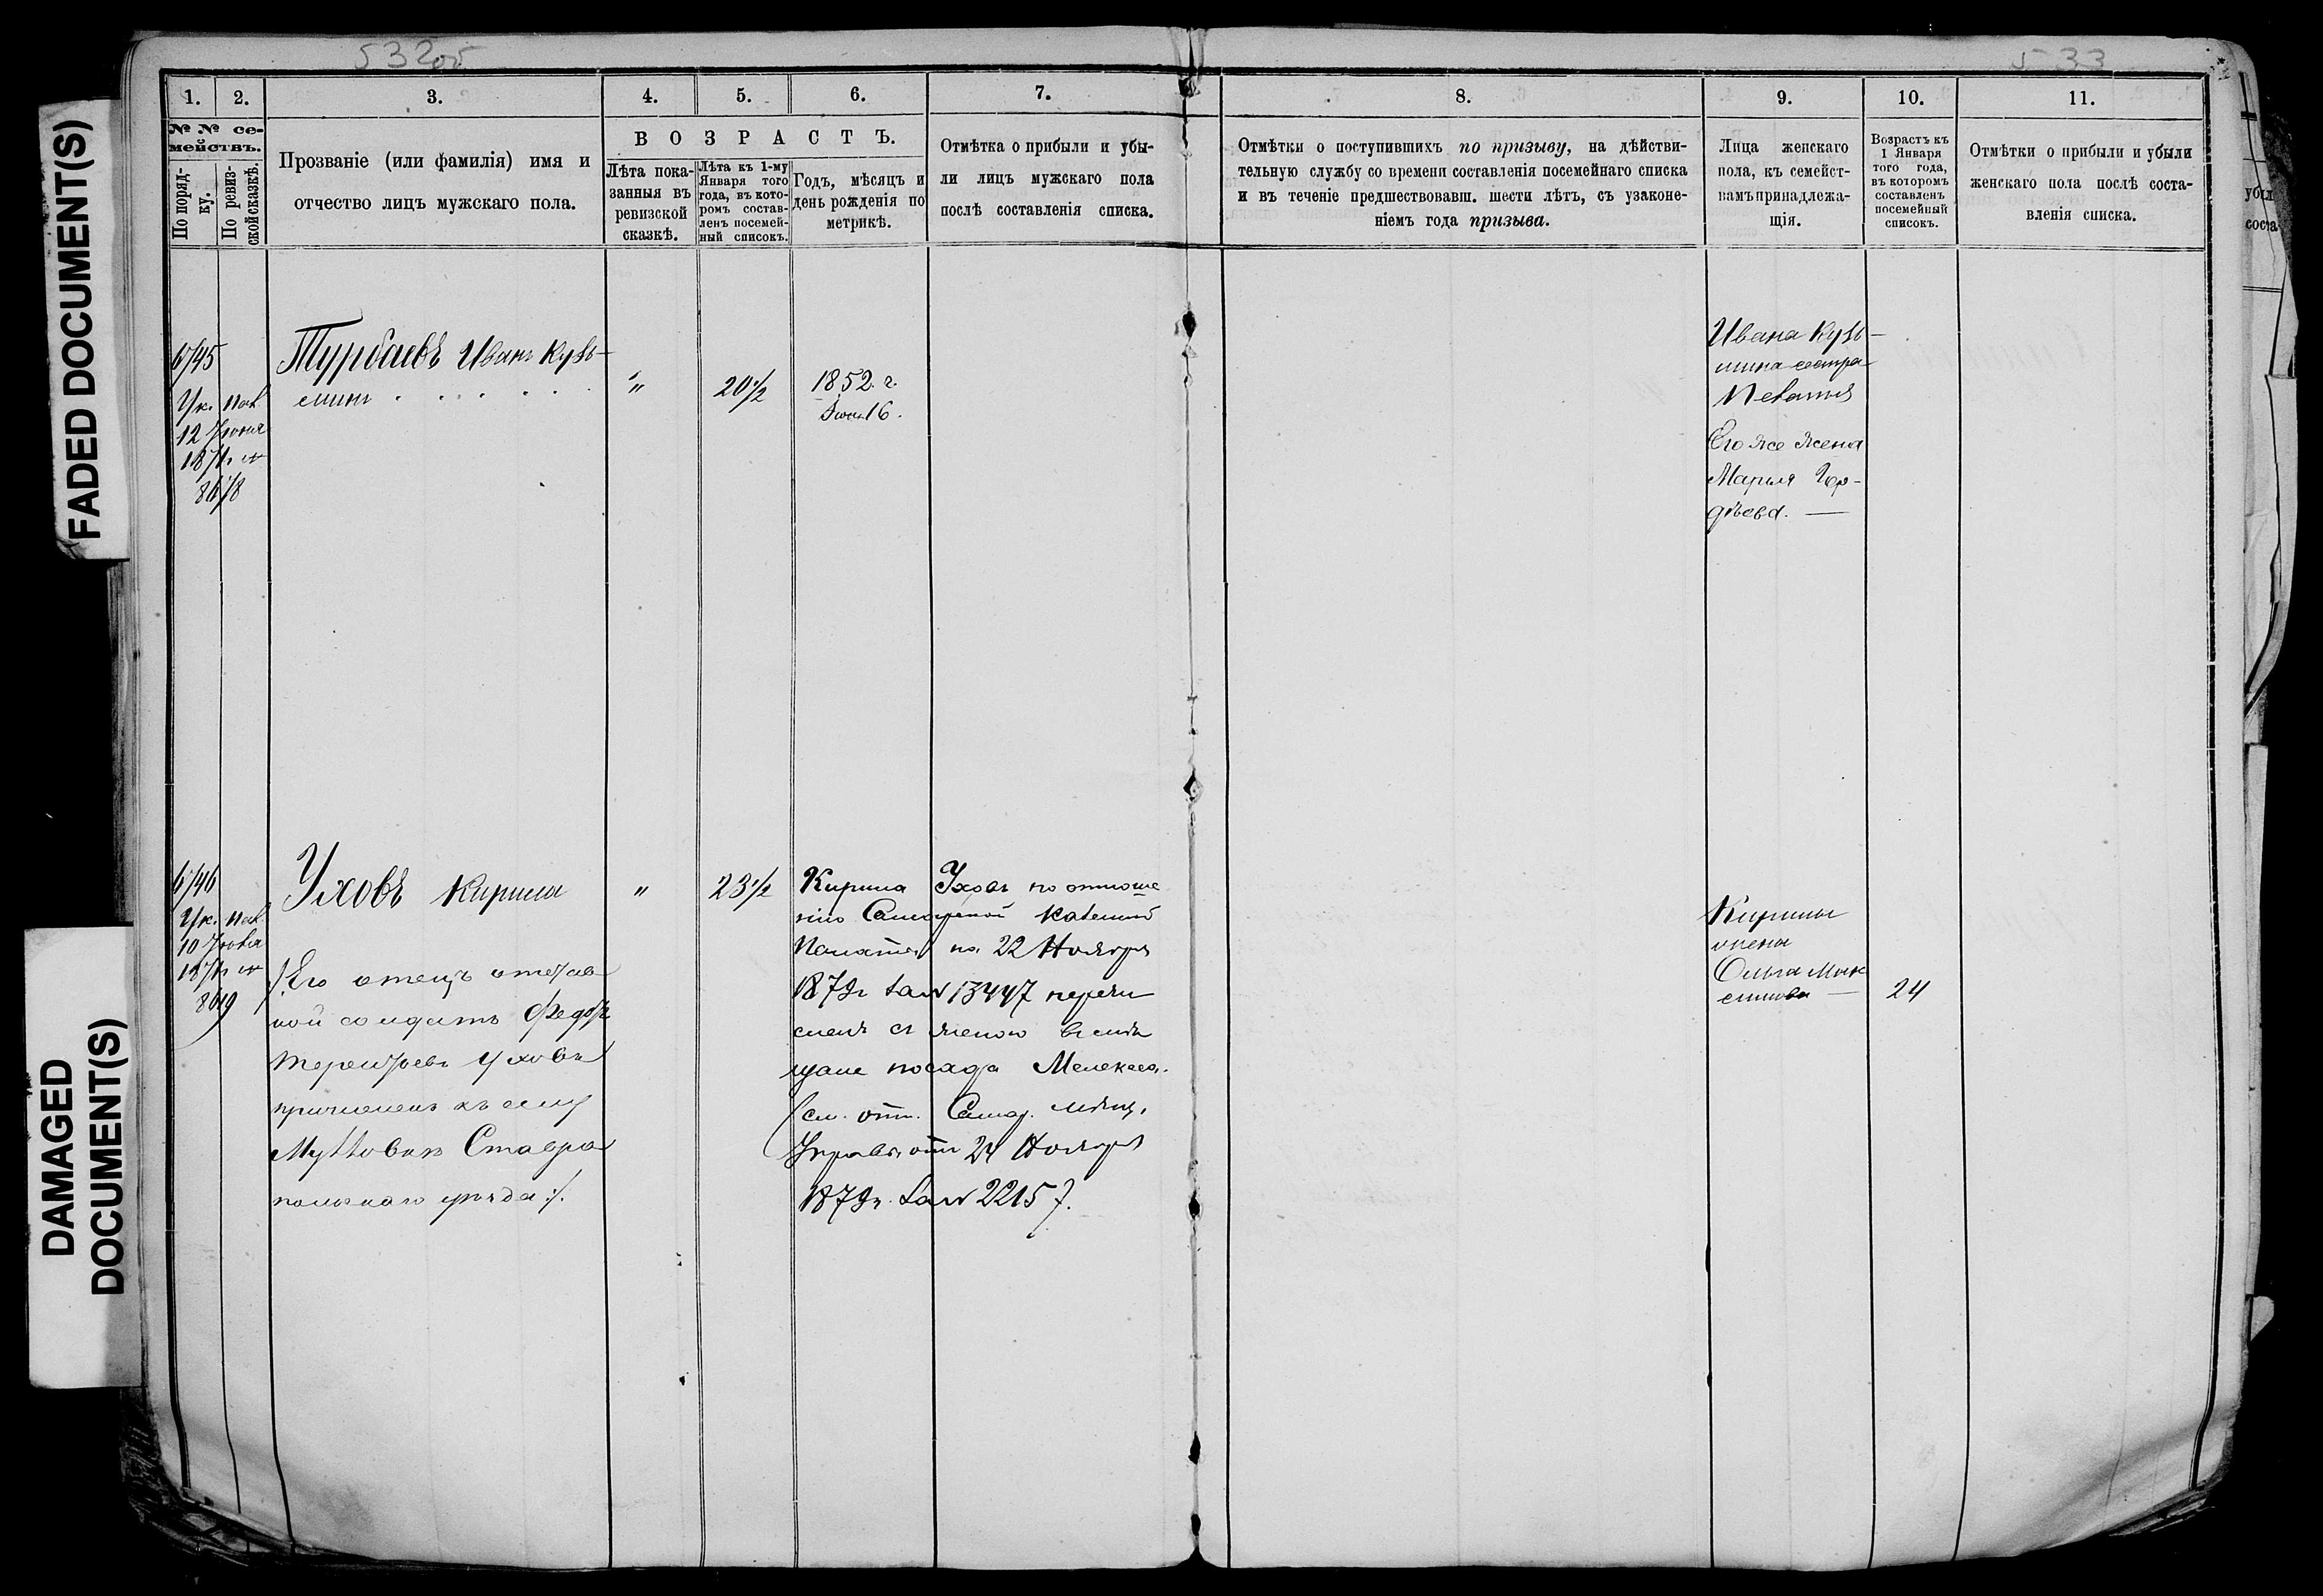 532об
533
FADED DOCUMENT(S)
DAMAGED
DOCUMENT(S)
1.
2.
3.
4.
5.
6.
7.
8.
9.
10.
11.
№ № се-
мействъ.
По поряд-
ку.
По ревиз-
ской сказкѣ.
Прозваніе (или фамилія) имя и
отчество лицъ мужскаго пола.
ВОЗРАСТЪ.
Лѣта пока-
занныя въ
ревизской
сказкѣ.
Лѣта къ 1-му
Января того
года, въ кото-
ромъ состав-
ленъ посемей-
ный списокъ.
Годъ, мѣсяцъ и
день рожденія по
метрикѣ.
Отмѣтка о прибыли и убы-
ли лицъ мужскаго пола
послѣ составленія списка.
Отмѣтки о поступившихъ по призыву, на дѣйстви-
тельную службу со времени составленія посемейнаго списка
и въ теченіе предшествовавш. шести лѣтъ, съ узаконе-
ніемъ года призыва.
Лица женскаго
пола, къ семейст-
вамъ принадлежа-
щія.
Возрастъ къ
1 Января
того года,
въ которомъ
составленъ
посемейный
списокъ.
Отмѣтки о прибыли и убыли
женскаго пола послѣ соста-
вленія списка.
убыл
соста
Ук. пал.
12 Іюня
1871 г. №
8678
Турбаевъ Иванъ Кузь-
минъ . . . . .
"
20½
1852 г.
16.
Ивана Кузь-
мина сестра
Его же жена
Марья Гор-
дѣева. —
Ук. пал.
10
1871 г. №
Уховъ Кирила
"
23½
Его отецъ отстав
ной солдатъ Федоръ
Терентьевъ Уховъ
причисленъ къ селу
Ставро
польскаго уѣзда
Кирила Уховъ по отноше
нію Самарской Казенной
Палаты на 22 Ноября
1879 г. за № 13447 перечи
сленъ съ женою въ мѣ
щане посада Мелекеса.
(см. отн. Самар. Мѣщ.
Управы отъ 24 Ноября
1879 г. за № 2215).
Кирилы
жена
Ольга Мак
симова —
24